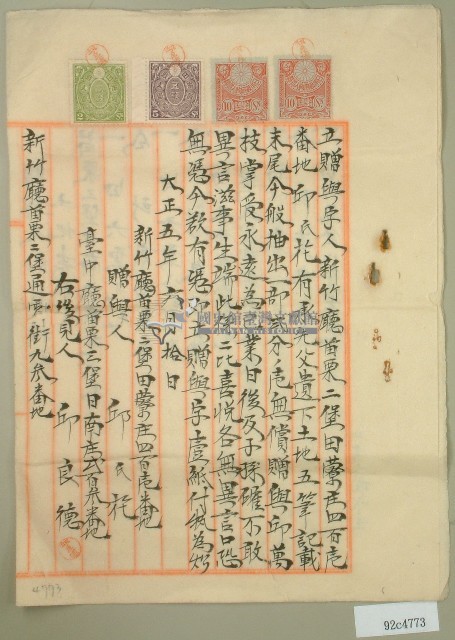 立贈與字人新竹廳苗栗二堡田藔庄四百壱
番地邱氏花有承先父遺下土地五筆記載
末尾今般抽出一部弐分之壱無償贈與邱萬
枝掌受永遠為業日後及子孫確不敢
異言滋事生端此係二比喜悅各無異言口恐
無憑今欲有憑即立贈與字壹紙付執為炤
大正五年六月拾日
新竹廳苗栗二堡田藔庄四百壱番地
贈與人 邱氏花
臺中廳苗栗三堡日南庄弐百叁番地
右後見人 邱良德
新竹廳苗栗二堡通霄街九叁番地
10 SN
10 SN
5 SN
2 SN
4773
92c4773